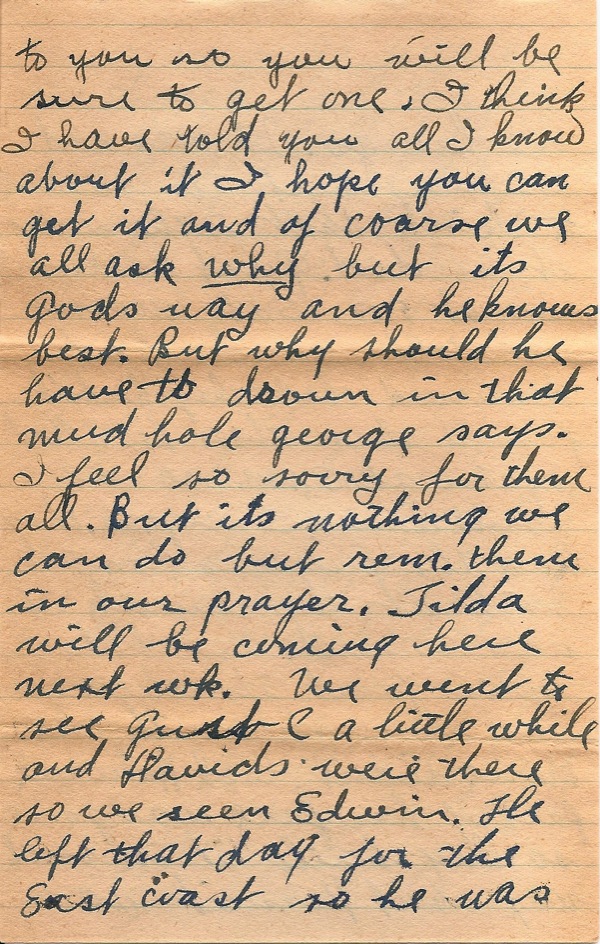 to you so you will be
sure to get one. I think
I have told you all I know
about it I hope you can
get it and of coarse we
all ask why but its
Gods way and he knows
best. But why should he
have to drown in that
mud hole george says.
I feel so sorry for them
all. But its nothing we
can do but rem. them
in our prayer. Tilda
will be coming here
next wk. We went to
see Gust C a little while
and Davids were there
so we seen Edwin. He
left that day for the
East coast so he was